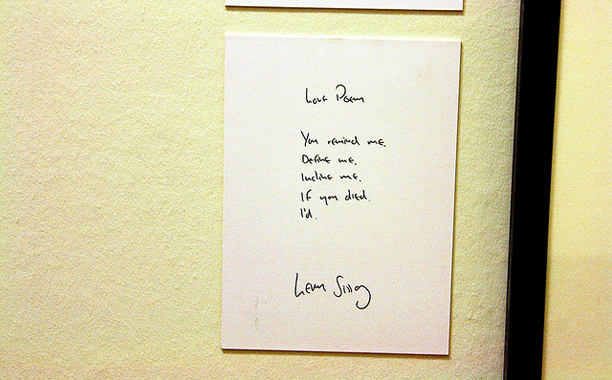 Love Poem
You remind me.
Define me.
Incline me.
If you died.
I'd.
Lemn Sissay